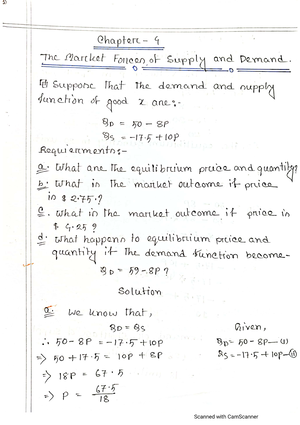 Chapter - 4
The Market Forces of Supply and Demand.
Suppose that the demand and supply
function of good x are:-
QD = 50 - 8P
QS = -17.5 + 10P
Requierments:-
a. What are the equilibrium price and quantity?
b. What is the market outcome if price
is $ 2.75?
c. What is the market outcome if price is
$ 4.25?
d. What happens to equilibrium price and
quantity if the demand function become-
QD = 59 - 8P?
Solution
a. We know that,
QD = QS
∴ 50 - 8P = -17.5 + 10P
=> 50 + 17.5 = 10P + 8P
=> 18P = 67.5
=> P = 67.5/18
Given,
QD = 50 - 8P —(i)
QS = -17.5 + 10P —(ii)
Scanned with CamScanner